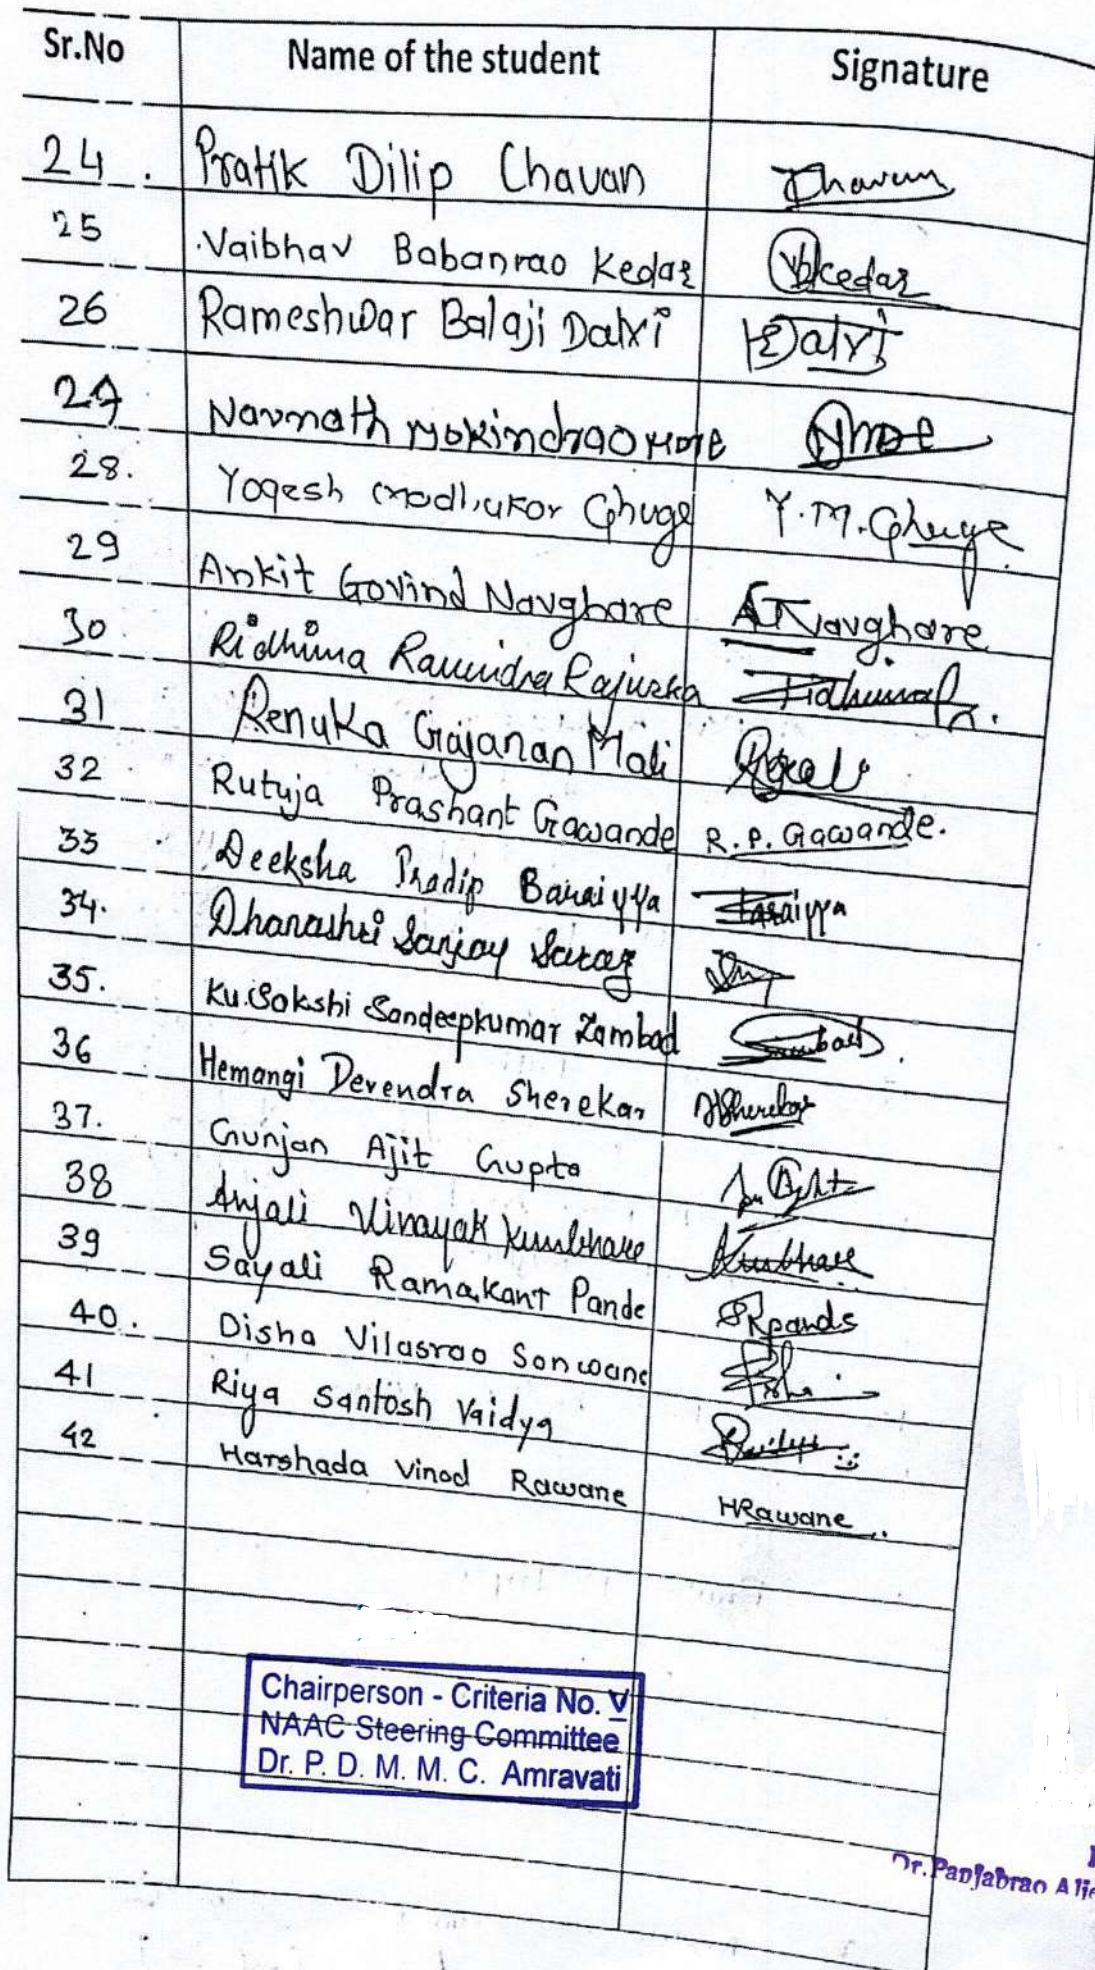 Sr.No Name of the student Signature
24. Pratik Dilip Chavan Chavan
25 Vaibhav Babanrao Kedar VBKedar
26 Rameshwar Balaji Dalvi Dalvi
27 Navnath Mokindrao More
28. Yogesh Madhukar Ghuge Y.M.Ghuge
29 Ankit Govind Navghare Navghare
30 Ridhima Ravindra Rajurka
31 Renuka Gajanan Mali
32 Rutuja Prashant Gawande R.P. Gawande.
33 Deeksha Pradip Baraiyya Baraiyya
34. Dhanashri Sanjay
35. Ku.Sakshi Sandeepkumar Zambad
36 Hemangi Devendra Sherekar HSherekar
37. Gunjan Ajit Gupta
38 Anjali Vinayak Kumbhare Kumbhare
39 Sayali Ramakant Pande SRpande
40. Disha Vilasrao Sonwane
41 Riya Santosh Vaidya
42 Harshada Vinod Rawane HRawane
Chairperson - Criteria No. V
NAAC Steering Committee
Dr. P. D. M. M. C. Amravati
Dr. Panjabrao Alia